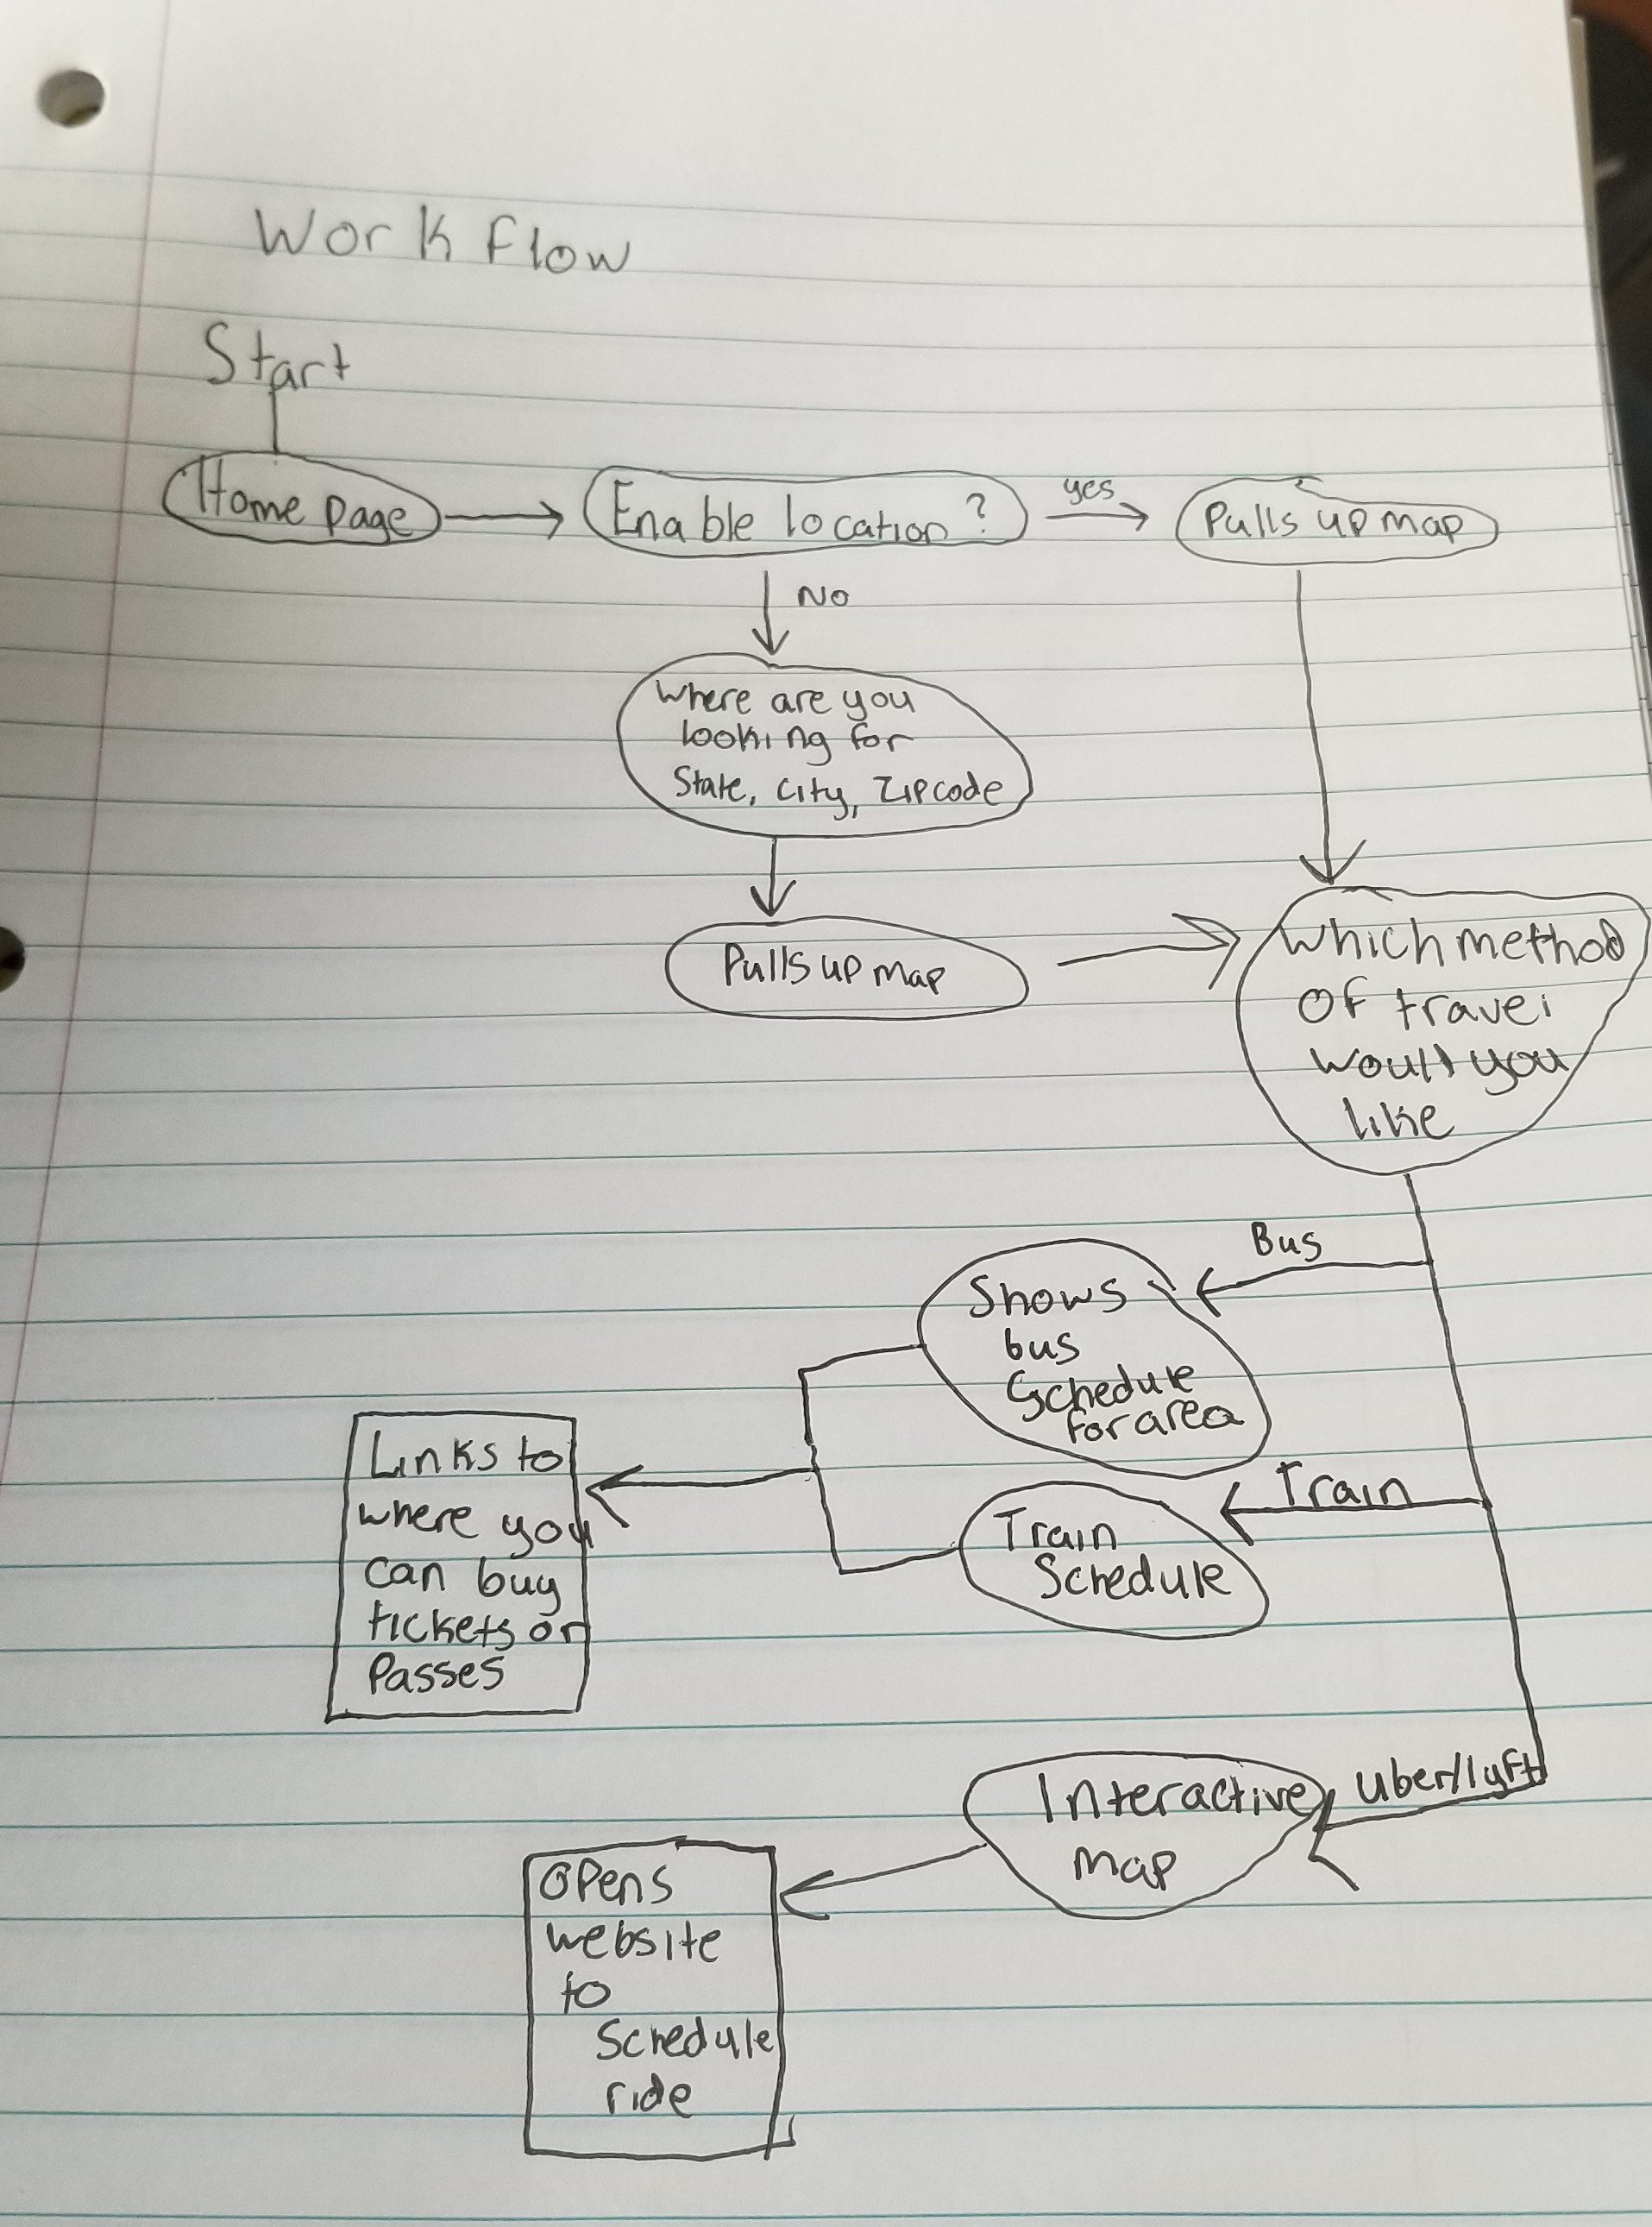 Work Flow
Start
Home page
Enable location?
yes
Pulls up map
No
Where are you
looking for
State, City, Zipcode
Pulls up map
Which method
Of travel
would you
like
Bus
Shows
bus
Schedule
for area
Train
Train
Schedule
Links to
where you
can buy
tickets or
Passes
Uber/lyft
Interactive
map
Opens
website
to
Schedule
ride